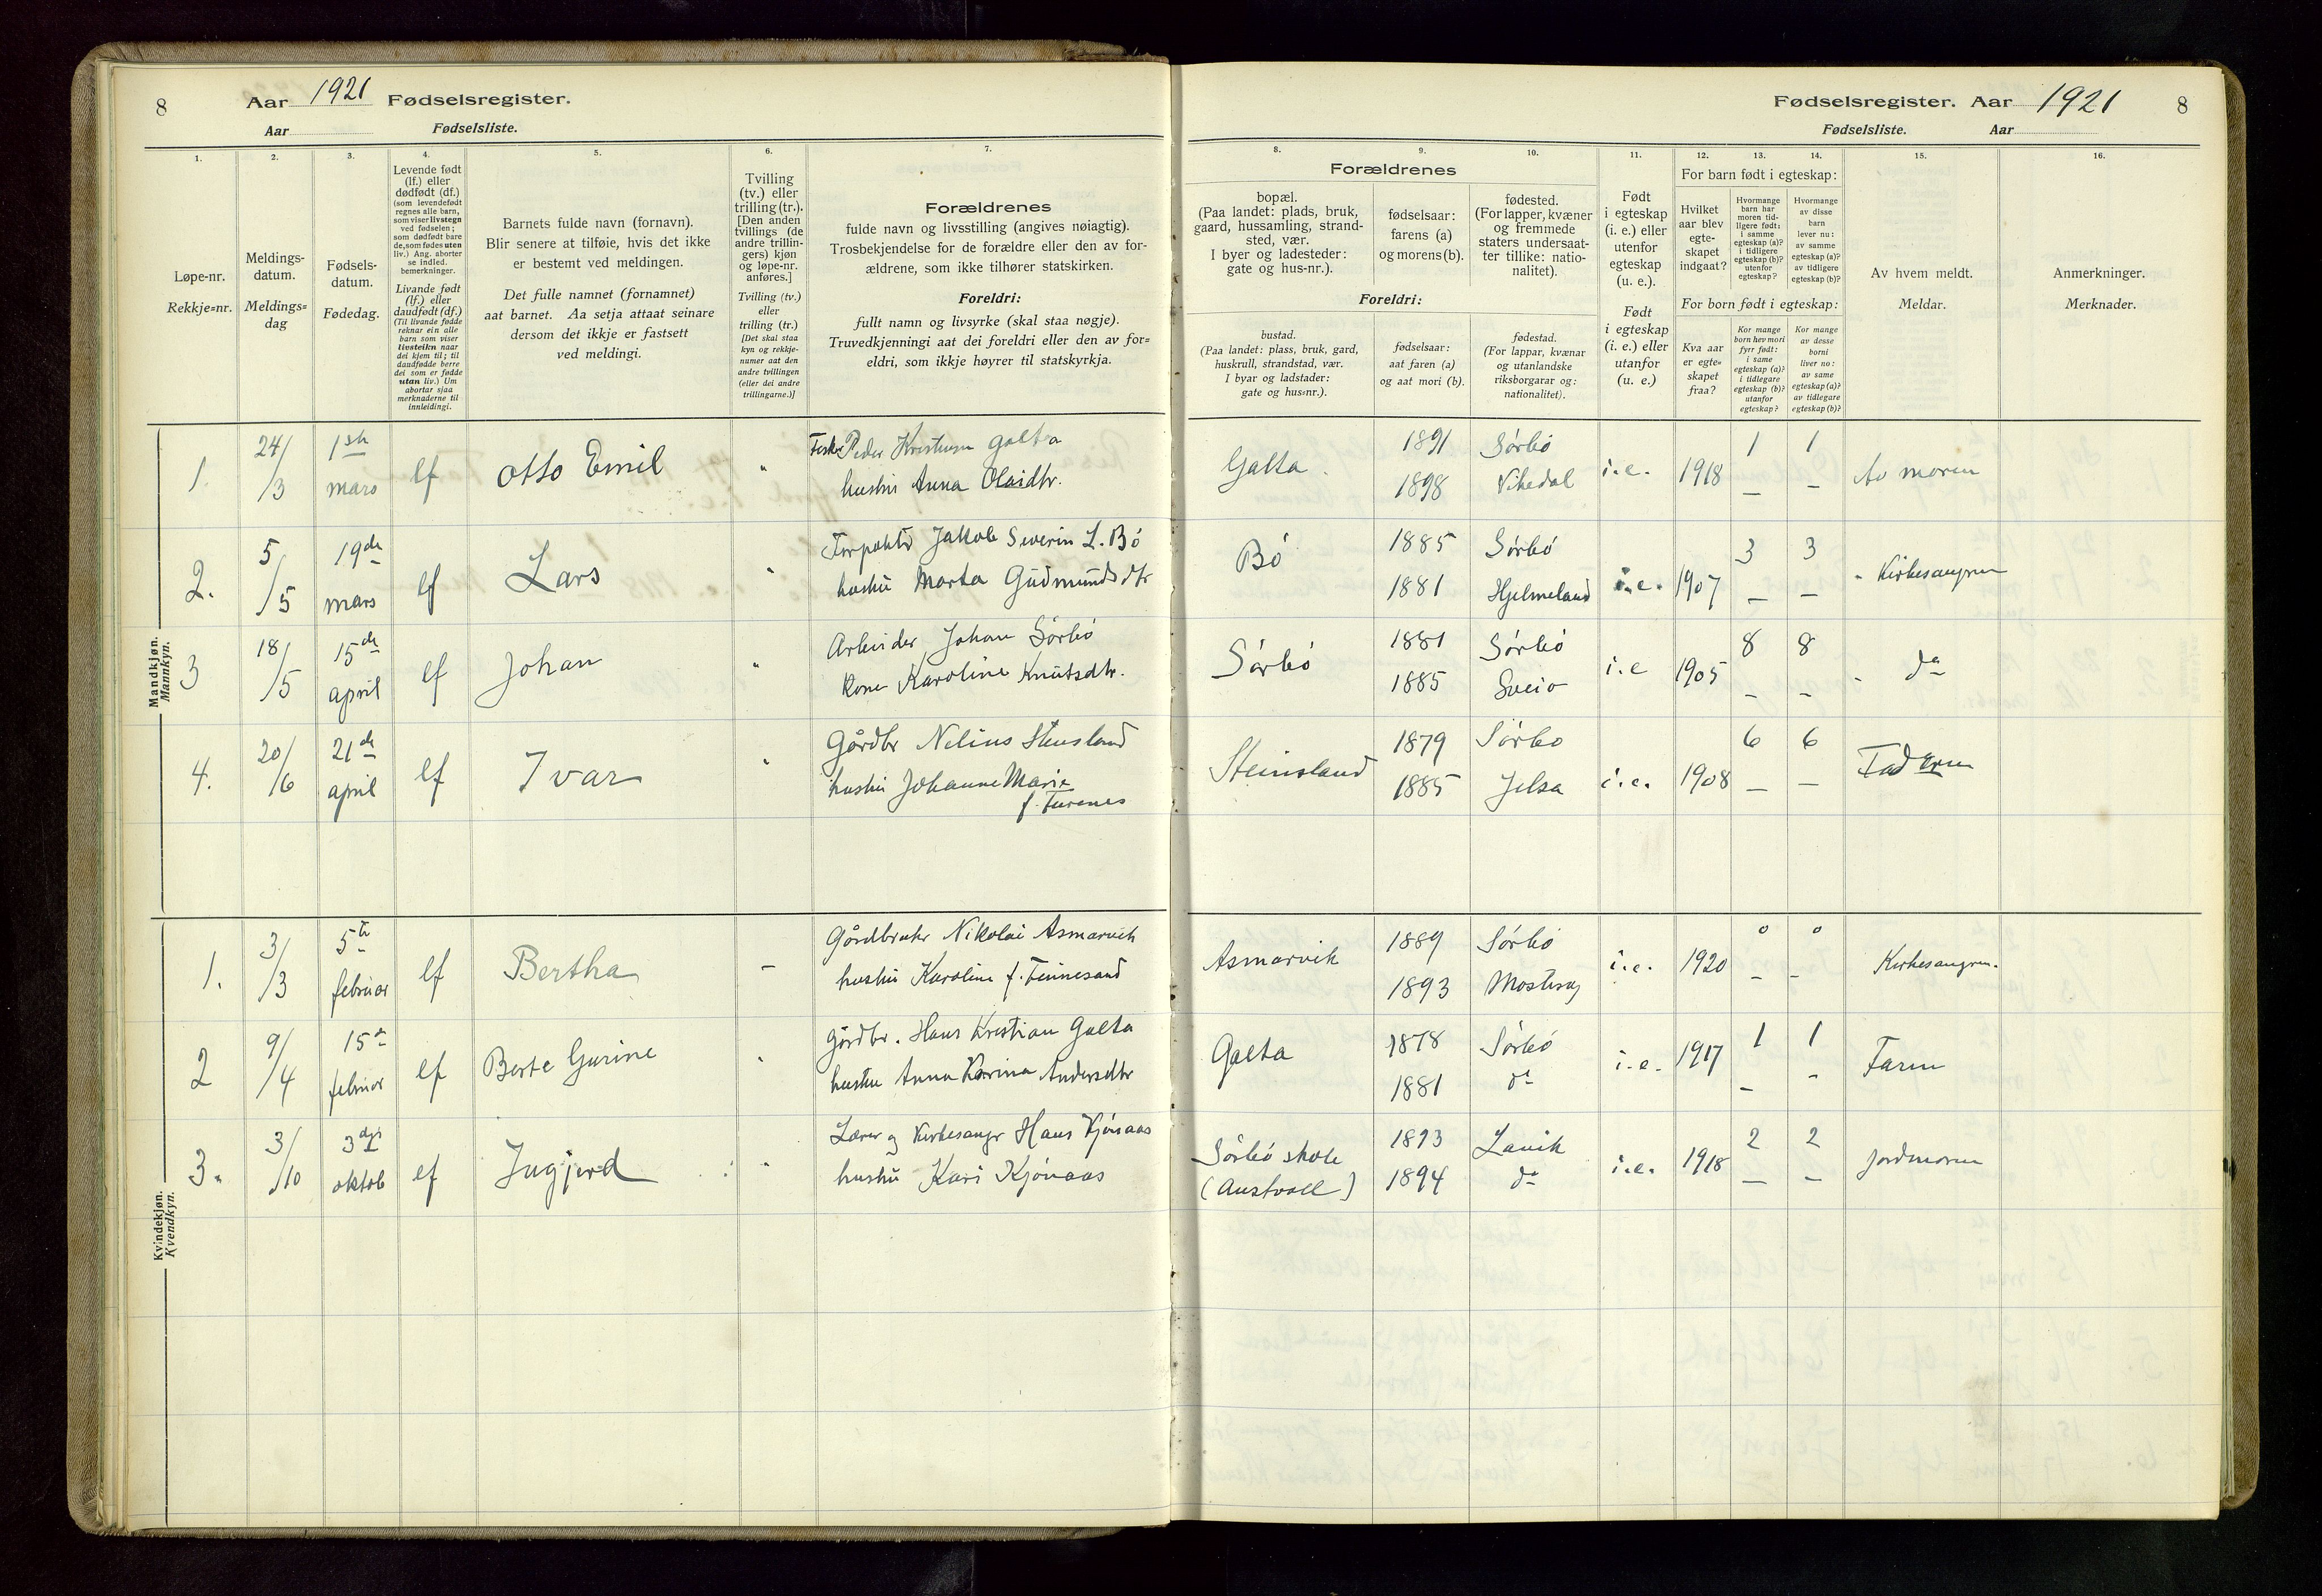 8 Aar 1921 Fødselsregister.
Aar Fødselsliste.
1.
Løpe-nr.
Rekkje=nr.
2.
Meldings-
datum.
Meldings=
dag
3.
Fødsels-
datum.
Fødedag.
4.
Levende født
(lf.) eller
dødfødt (df.)
(som levendefødt
regnes alle barn,
som viser livstegn
ved fødselen;
som dødfødt bare
de, som fødes uten
liv.) Ang. aborter
se indled.
bemerkninger.
Livande født
(lf.) eller
daudfødt (df.)
(Til livande fødde
reknar ein alle
barn som viser
livsteikn naar
dei kjem til; til
daudfødde berre
dei som er fødde
utan liv.) Um
abortar sjaa
merknaderne til
innleidingi.
5.
Barnets fulde navn (fornavn).
Blir senere at tilføie, hvis det ikke
er bestemt ved meldingen.
Det fulle namnet (fornamnet)
aat barnet. Aa setja attaat seinare
dersom det ikkje er fastsett
ved meldingi.
6.
Tvilling
(tv.) eller
trilling (tr.).
[Den anden
tvillings (de
andre trillin-
gers) kjøn
og løpe-nr.
anføres.]
Tvilling (tv.)
eller
trilling (tr.)
[Det skal staa
kyn og rekkje-
numer aat den
andre tvillingen
(eller dei andre
trillingarne.)]
7.
Forældrenes
fulde navn og livsstilling (angives nøiagtig).
Trosbekjendelse for de forældre eller den av for-
ældrene, som ikke tilhører statskirken.
Foreldri:
fullt namn og livsyrke (skal staa nøgje).
Truvedkjenningi aat dei foreldri eller den av for=
eldri, som ikkje høyrer til statskyrkja.
Mandkjøn.
Mannkyn.
1. 24/3 1ste mars lf Otto Emil " Fisker Peder Kristensen Galta
hustru Anna Olaidtr.
2. 5/5 19de mars lf Lars " Jakob Severin L. Bö
hustru Marta Gudmundsdtr
3 18/5 15de april lf Johan " Arbeider Johan Sörbö
kone Karoline Knutsdtr.
4. 20/6 21de april lf Ivar " Gårdbr Nelius Stensland
hustru Johanne Marie
f.
Kvindekjøn.
Kvendkyn.
1. 3/3 5te februar lf Bertha – Gårdbruker Nikolai Asmarvik
hustru Karoline f. Finnesand
2 9/4 15de februar lf Berte Gurine " Gårdbr. Hans Kristian Galta
hustru Anna Karina Andersdtr
3. 3/10 3dje oktob lf Ingjerd " Lærer og kirkesangr Hans Kjönaas
hustru Kari Kjönaas
Fødselsregister. Aar 1921 8
Fødselsliste. Aar
8.
Forældrenes
bopæl.
(Paa landet: plads, bruk,
gaard, hussamling, strand-
sted, vær.
I byer og ladesteder:
gate og hus-nr.).
Foreldri:
bustad.
(Paa landet: plass, bruk, gard,
huskrull, strandstad, vær.
I byar og ladstader:
gate og hus=nr.).
9.
fødselsaar:
farens (a)
og morens (b).
fødselsaar:
aat faren (a)
og aat mori (b).
10.
fødested.
(For lapper, kvæner
og fremmede
staters undersaat-
ter tillike: natio-
nalitet).
fødestad.
(For lappar, kvænar
og utanlandske
riksborgarar og:
nationalitet).
11.
Født
i egteskap
(i. e.) eller
utenfor
egteskap
(u. e.).
Født
i egteskap
(i. e.) eller
utanfor
(u. e.)
For barn født i egteskap:
12.
Hvilket
aar blev
egte-
skapet
indgaat?
13.
Hvormange
barn har
moren tid-
ligere født:
i samme
egteskap (a)?
i tidligere
egteskap (b)?
utenfor
egteskap?
14.
Hvormange
av disse
barn
lever nu:
av samme
egteskap (a)?
av tidligere
egteskap (b)?
For born født i egteskap:
Kva aar
er egte-
skapet
fraa?
Kor mange
born hev mori
fyrr født:
i same
egteskap (a)?
i tidlegare
egteskap (b)?
utanfor
egteskap?
Kor mange
av desse
borni
liver no:
av same
egteskap (a)?
av tidlegare
egteskap (b)?
15.
Av hvem meldt.
Meldar.
16.
Anmerkninger.
Merknader.
Galta. 1891 Sörbö i.e. 1918 1 1 Av moren
1898 Vikedal – –
Bö 1885 Sörbö i.e. 1907 3 3 " Kirkesangeren
1881 Hjelmeland – –
Sörbö 1881 Sörbö i.e 1905 8 8 " do
1885 Sveio – –
Steinsland 1879 Sörbö i.e. 1908 6 6 Faderen
1885 Jelsa – –
Asmarvik 1889 Sörbö i.e. 1920 0 0 Kirkesangren.
1893 Mosteröy – –
Galta 1878 Sörbö i.e. 1917 1 1 Faren
1881 do – –
Sörbö skole 1893 Lavik i.e. 1918 2 2 jordmoren
(Austvoll) 1894 do – –